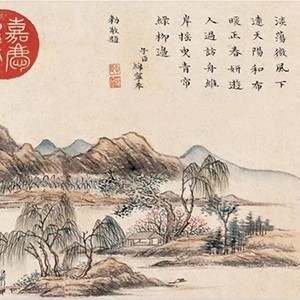 淡蕩微風下
遠天陽和布
暖正春妍遊
人過訪舟維
岸搖曳青帘
綠柳邊
子臣綿寧奉
勅敬題
嘉慶